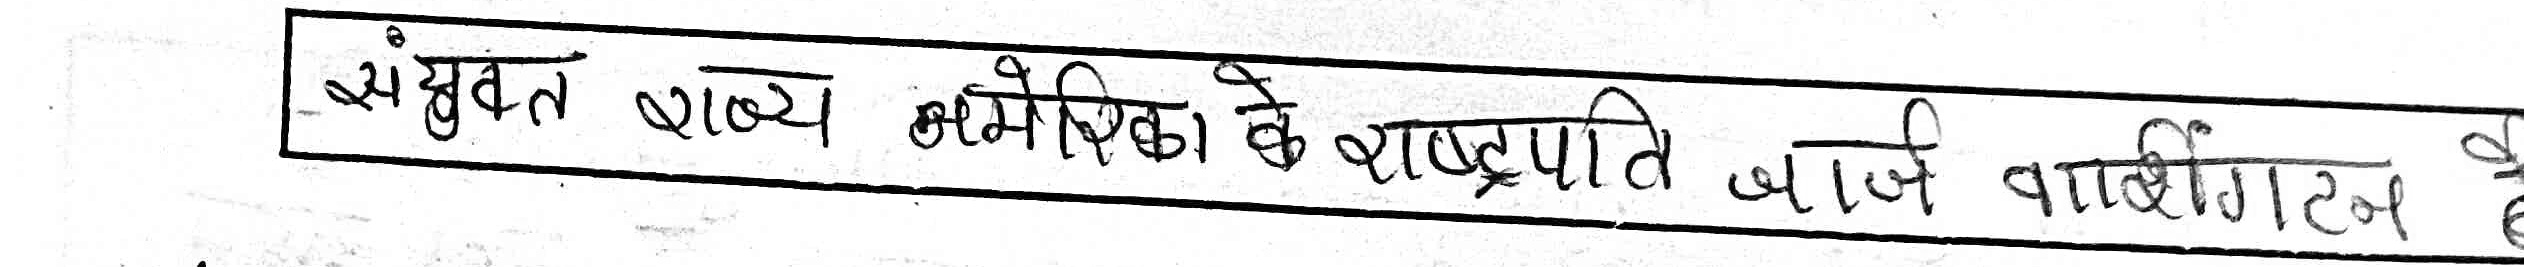 संयुक्त राज्य अमेरिका के राष्ट्रपति जार्ज वाशिंगटन